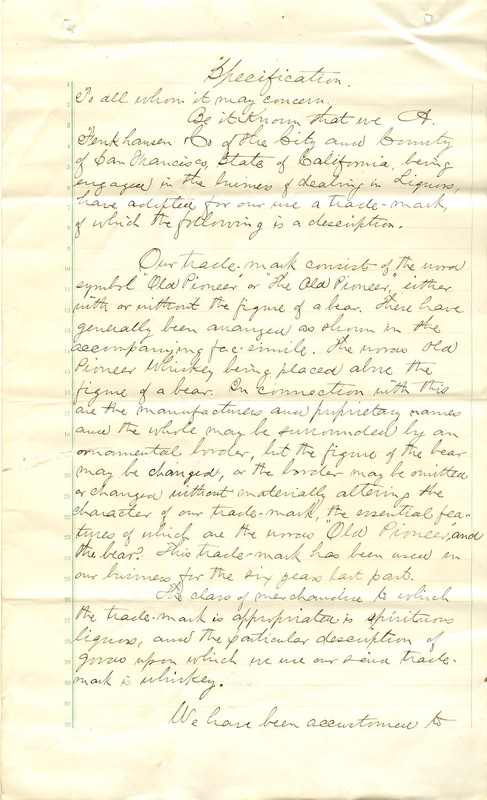 Specification.
To all whom it may concern
Be it known that we A.
Fenkhausen & Co of the City and County
of San Francisco, State of California, being
engaged in the business of dealing in Liquors,
have adopted for our use a trade-mark,
of which the following is a description.
Our trade-mark consist of the word
symbol "Old Pioneer" or "The Old Pioneer," either
with or without the figure of a bear. These have
generally been arranged as shown in the
accompanying fac-simile. The words Old
Pioneer Whiskey being placed above the
figure of a bear. In connection with this
are the manufacturers and proprietary names
and the whole may be surrounded by an
ornamental border, but the figure of the bear
may be changed, or the border may be omitted
or changed without materially altering the
character of our trade-mark, the essential fea-
tures of which are the words "Old Pioneer," and
the bear. This trade-mark has been used in
our business for the six years last past.
The class of merchandise to which
the trade-mark is appropriated is spirituous
liquors, and the particular description of
goods upon which we use our said trade-
mark is whiskey.
We have been accustomed to